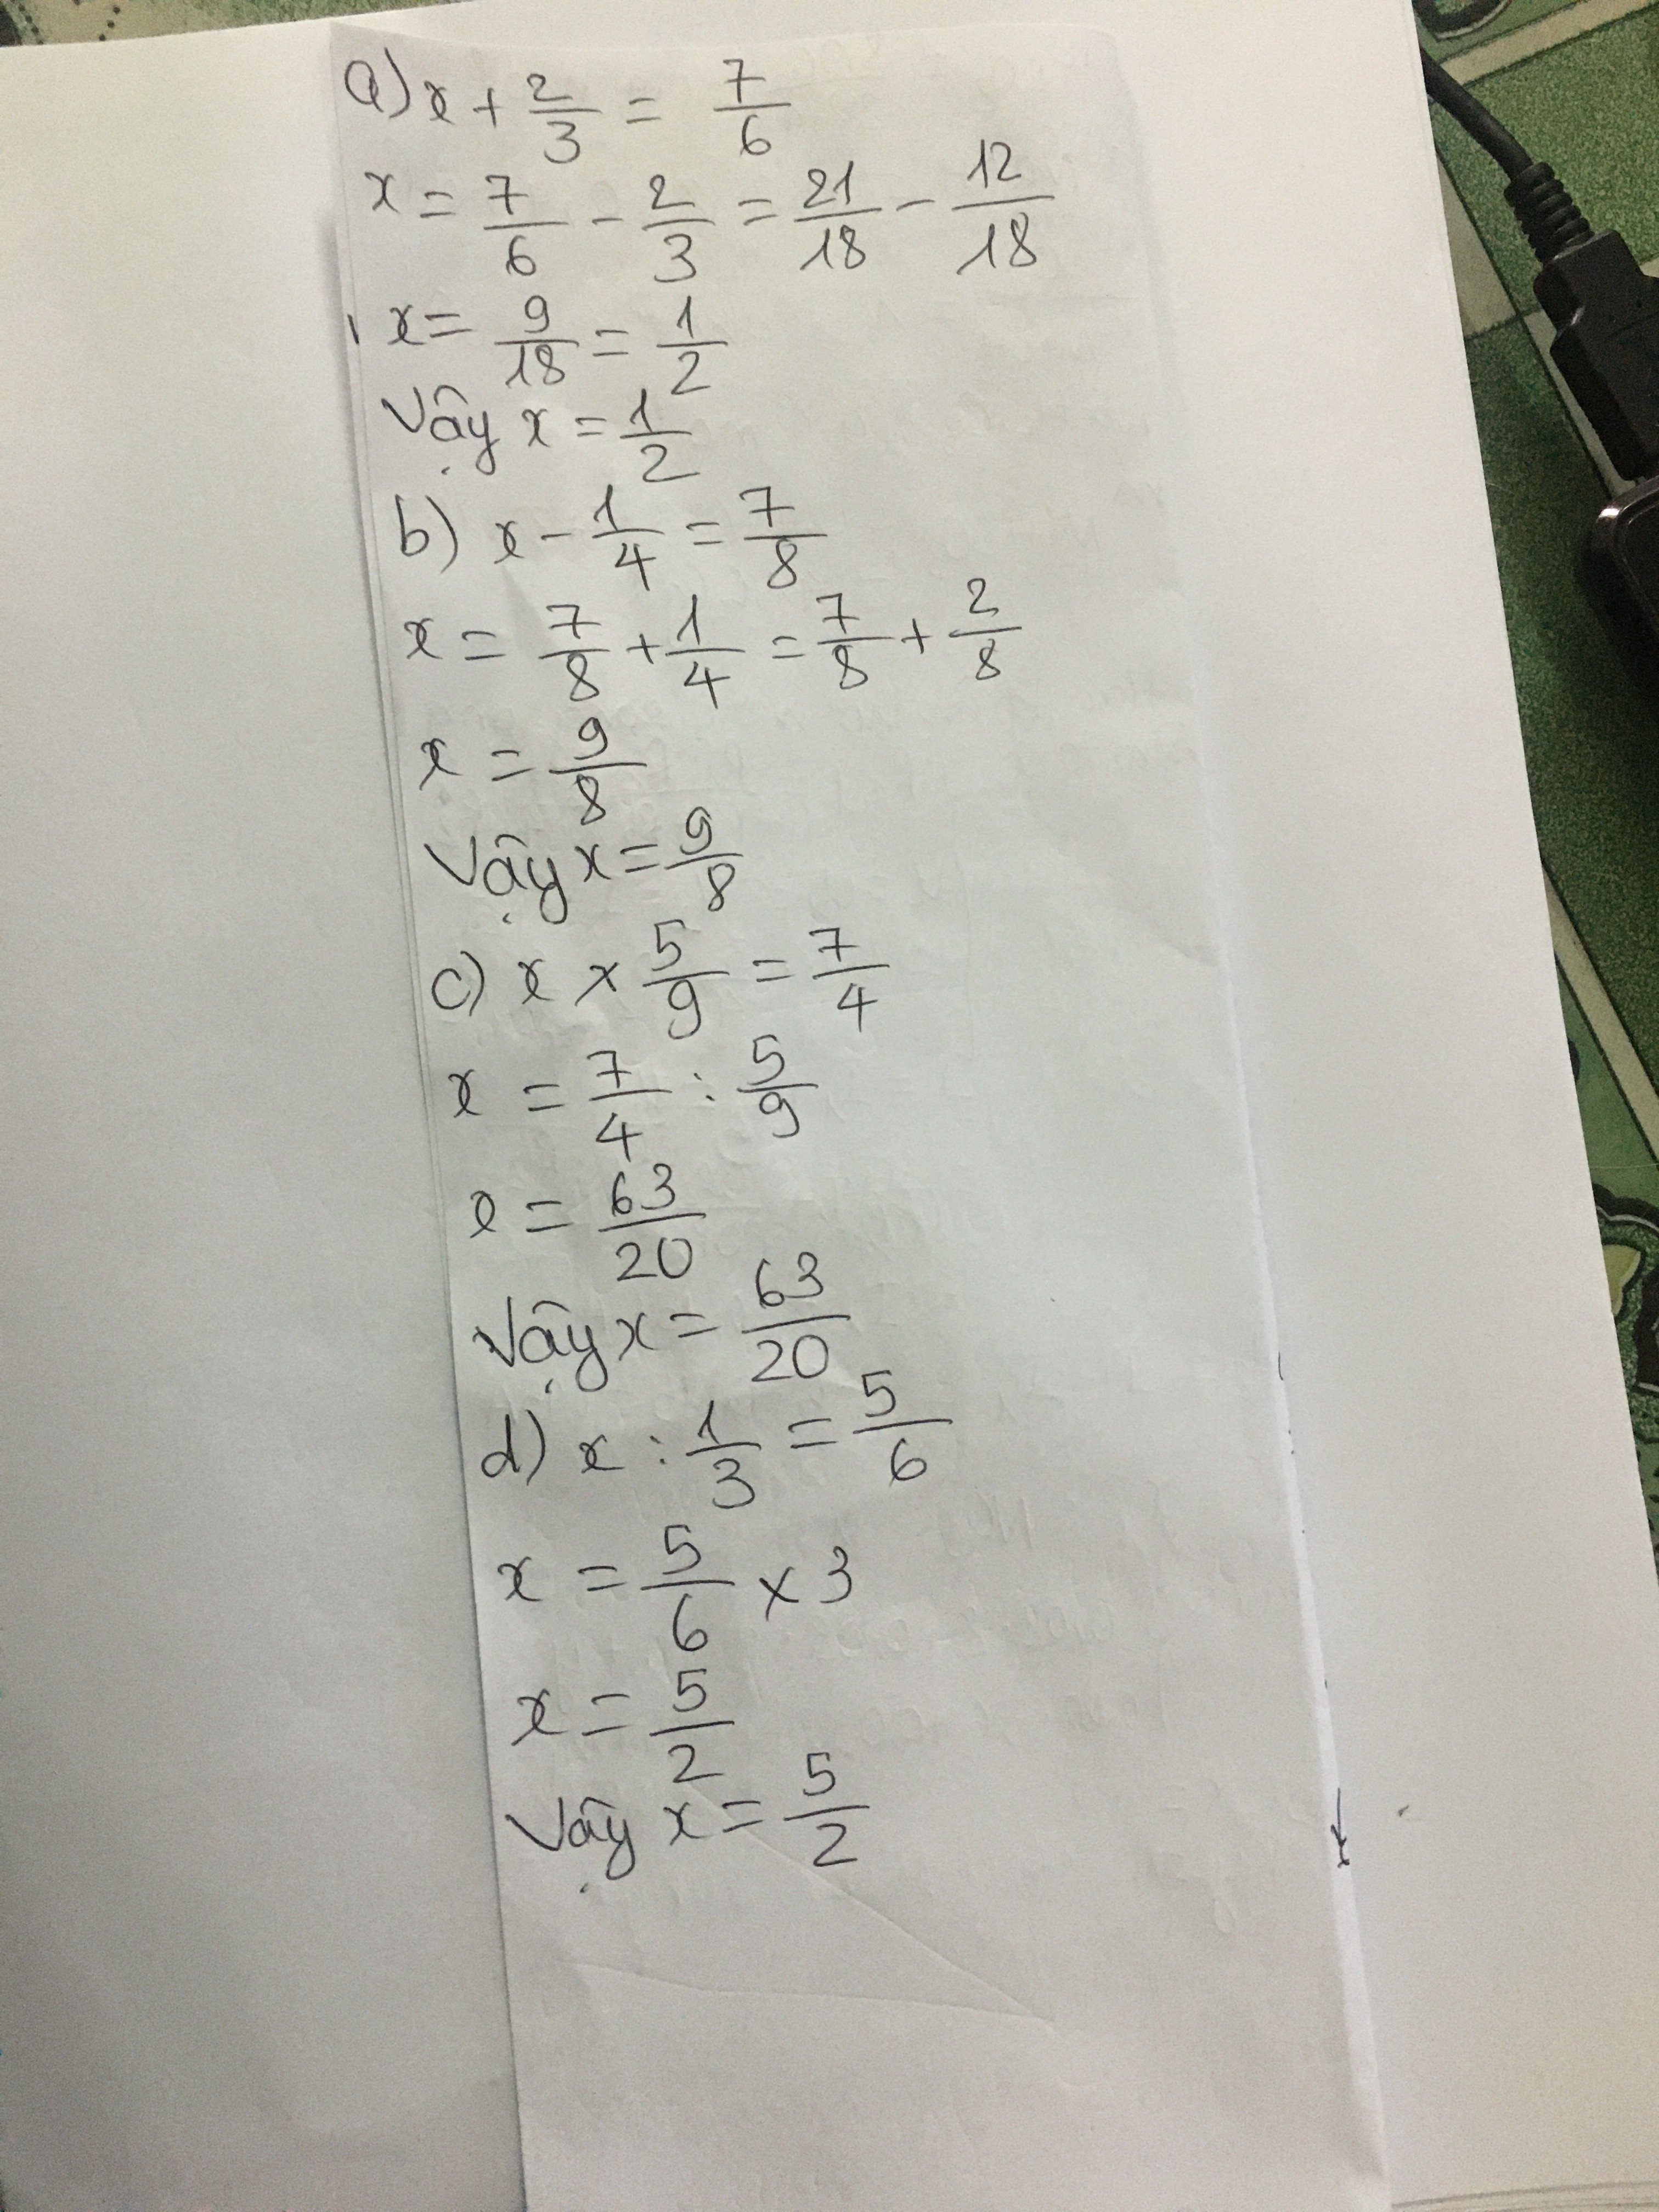 a) x + 2/3 = 7/6
x = 7/6 - 2/3 = 21/18 - 12/18
x = 9/18 = 1/2
Vậy x = 1/2
b) x - 1/4 = 7/8
x = 7/8 + 1/4 = 7/8 + 2/8
x = 9/8
Vậy x = 9/8
c) x × 5/9 = 7/4
x = 7/4 : 5/9
x = 63/20
Vậy x = 63/20
d) x : 1/3 = 5/6
x = 5/6 × 3
x = 5/2
Vậy x = 5/2